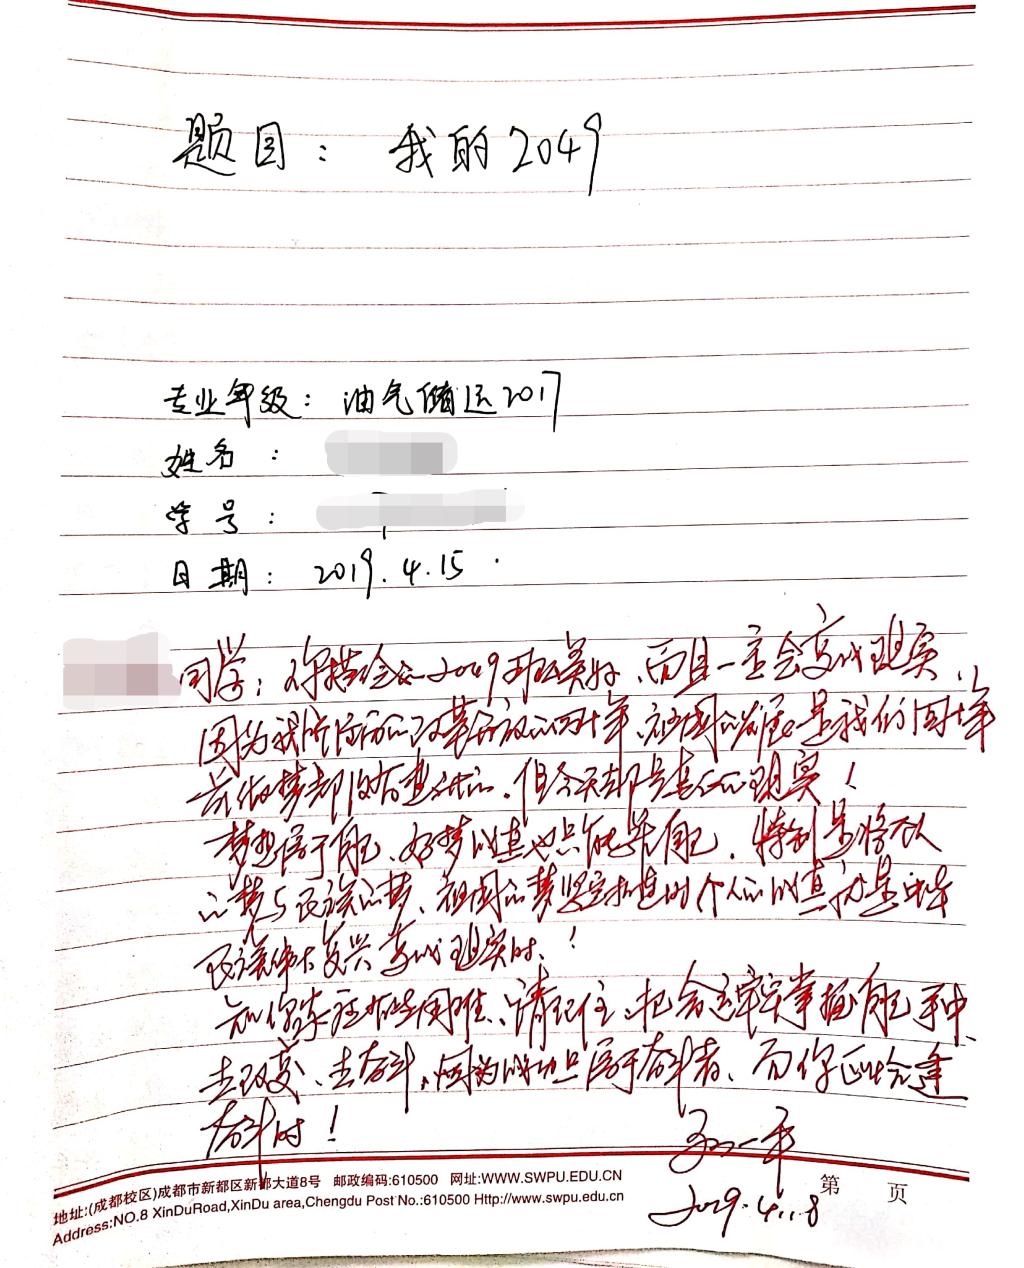 题目： 我的2049
专业年级：油气储运2017
姓名：
学号：
日期：2019.4.15
同学：你描绘的2049那么美好、而且一定会变成现实、
因为我所经历的改革开放的四十年、祖国的发展是我们四十年
前做梦都没有想到的、但今天都是真实的现实！
梦想属于自己、好梦成真也只能靠自己、特别是将个人
的梦与民族的梦、祖国的梦 个人的成真就是中华
民族伟大复兴变成现实时！
知你家庭有些困难、请记住、把命运牢牢掌握自己手中、
去改变、去奋斗、因为成功只属于奋斗者、而你正恰逢
奋斗时！
2019.4.18
第 页
地址:(成都校区)成都市新都区新都大道8号 邮政编码:610500 网址:WWW.SWPU.EDU.CN
Address:NO.8 XinDuRoad,XinDu area,Chengdu Post No.:610500 Http://www.swpu.edu.cn